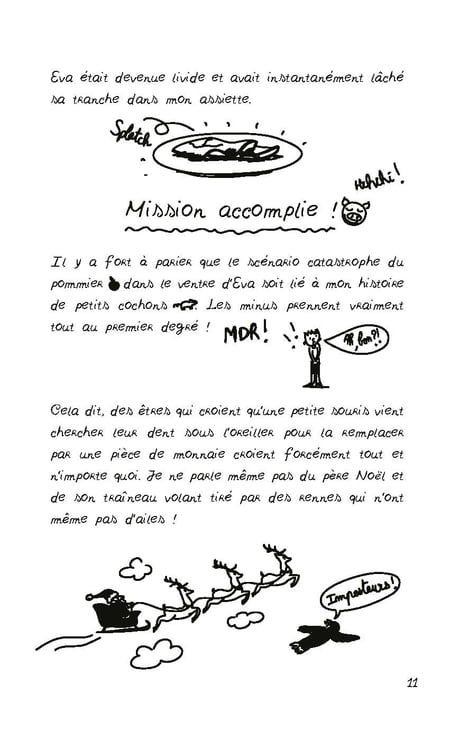 Eva était devenue livide et avait instantanément lâché
sa tranche dans mon assiette.
Splatch
Hihihi !
Mission accomplie !
Il y a fort à parier que le scénario catastrophe du
pommier dans le ventre d'Eva soit lié à mon histoire
de petits cochons. Les minus prennent vraiment
tout au premier degré !
MDR !
Ah, bon ?!
Cela dit, des êtres qui croient qu'une petite souris vient
chercher leur dent sous l'oreiller pour la remplacer
par une pièce de monnaie croient forcément tout et
n'importe quoi. Je ne parle même pas du père Noël et
de son traîneau volant tiré par des rennes qui n'ont
même pas d'ailes !
Imposteurs !
11